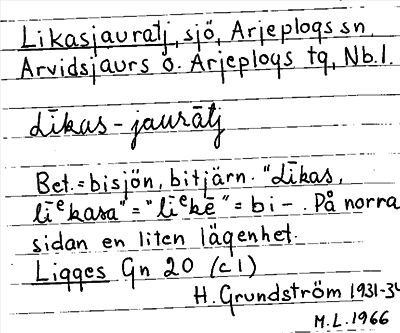 Likasjauratj, sjö, Arjeplogs sn,
Arvidsjaurs o. Arjeplogs tg, Nb.l.
Līkas-jaurātj
Bet. = bisjön, bitjärn. "Līkas,
līekasa" = "līekē" = bi-. På norra
sidan en liten lägenhet.
Ligges Gn 20 (c1)
H. Grundström 1931-34
M.L. 1966